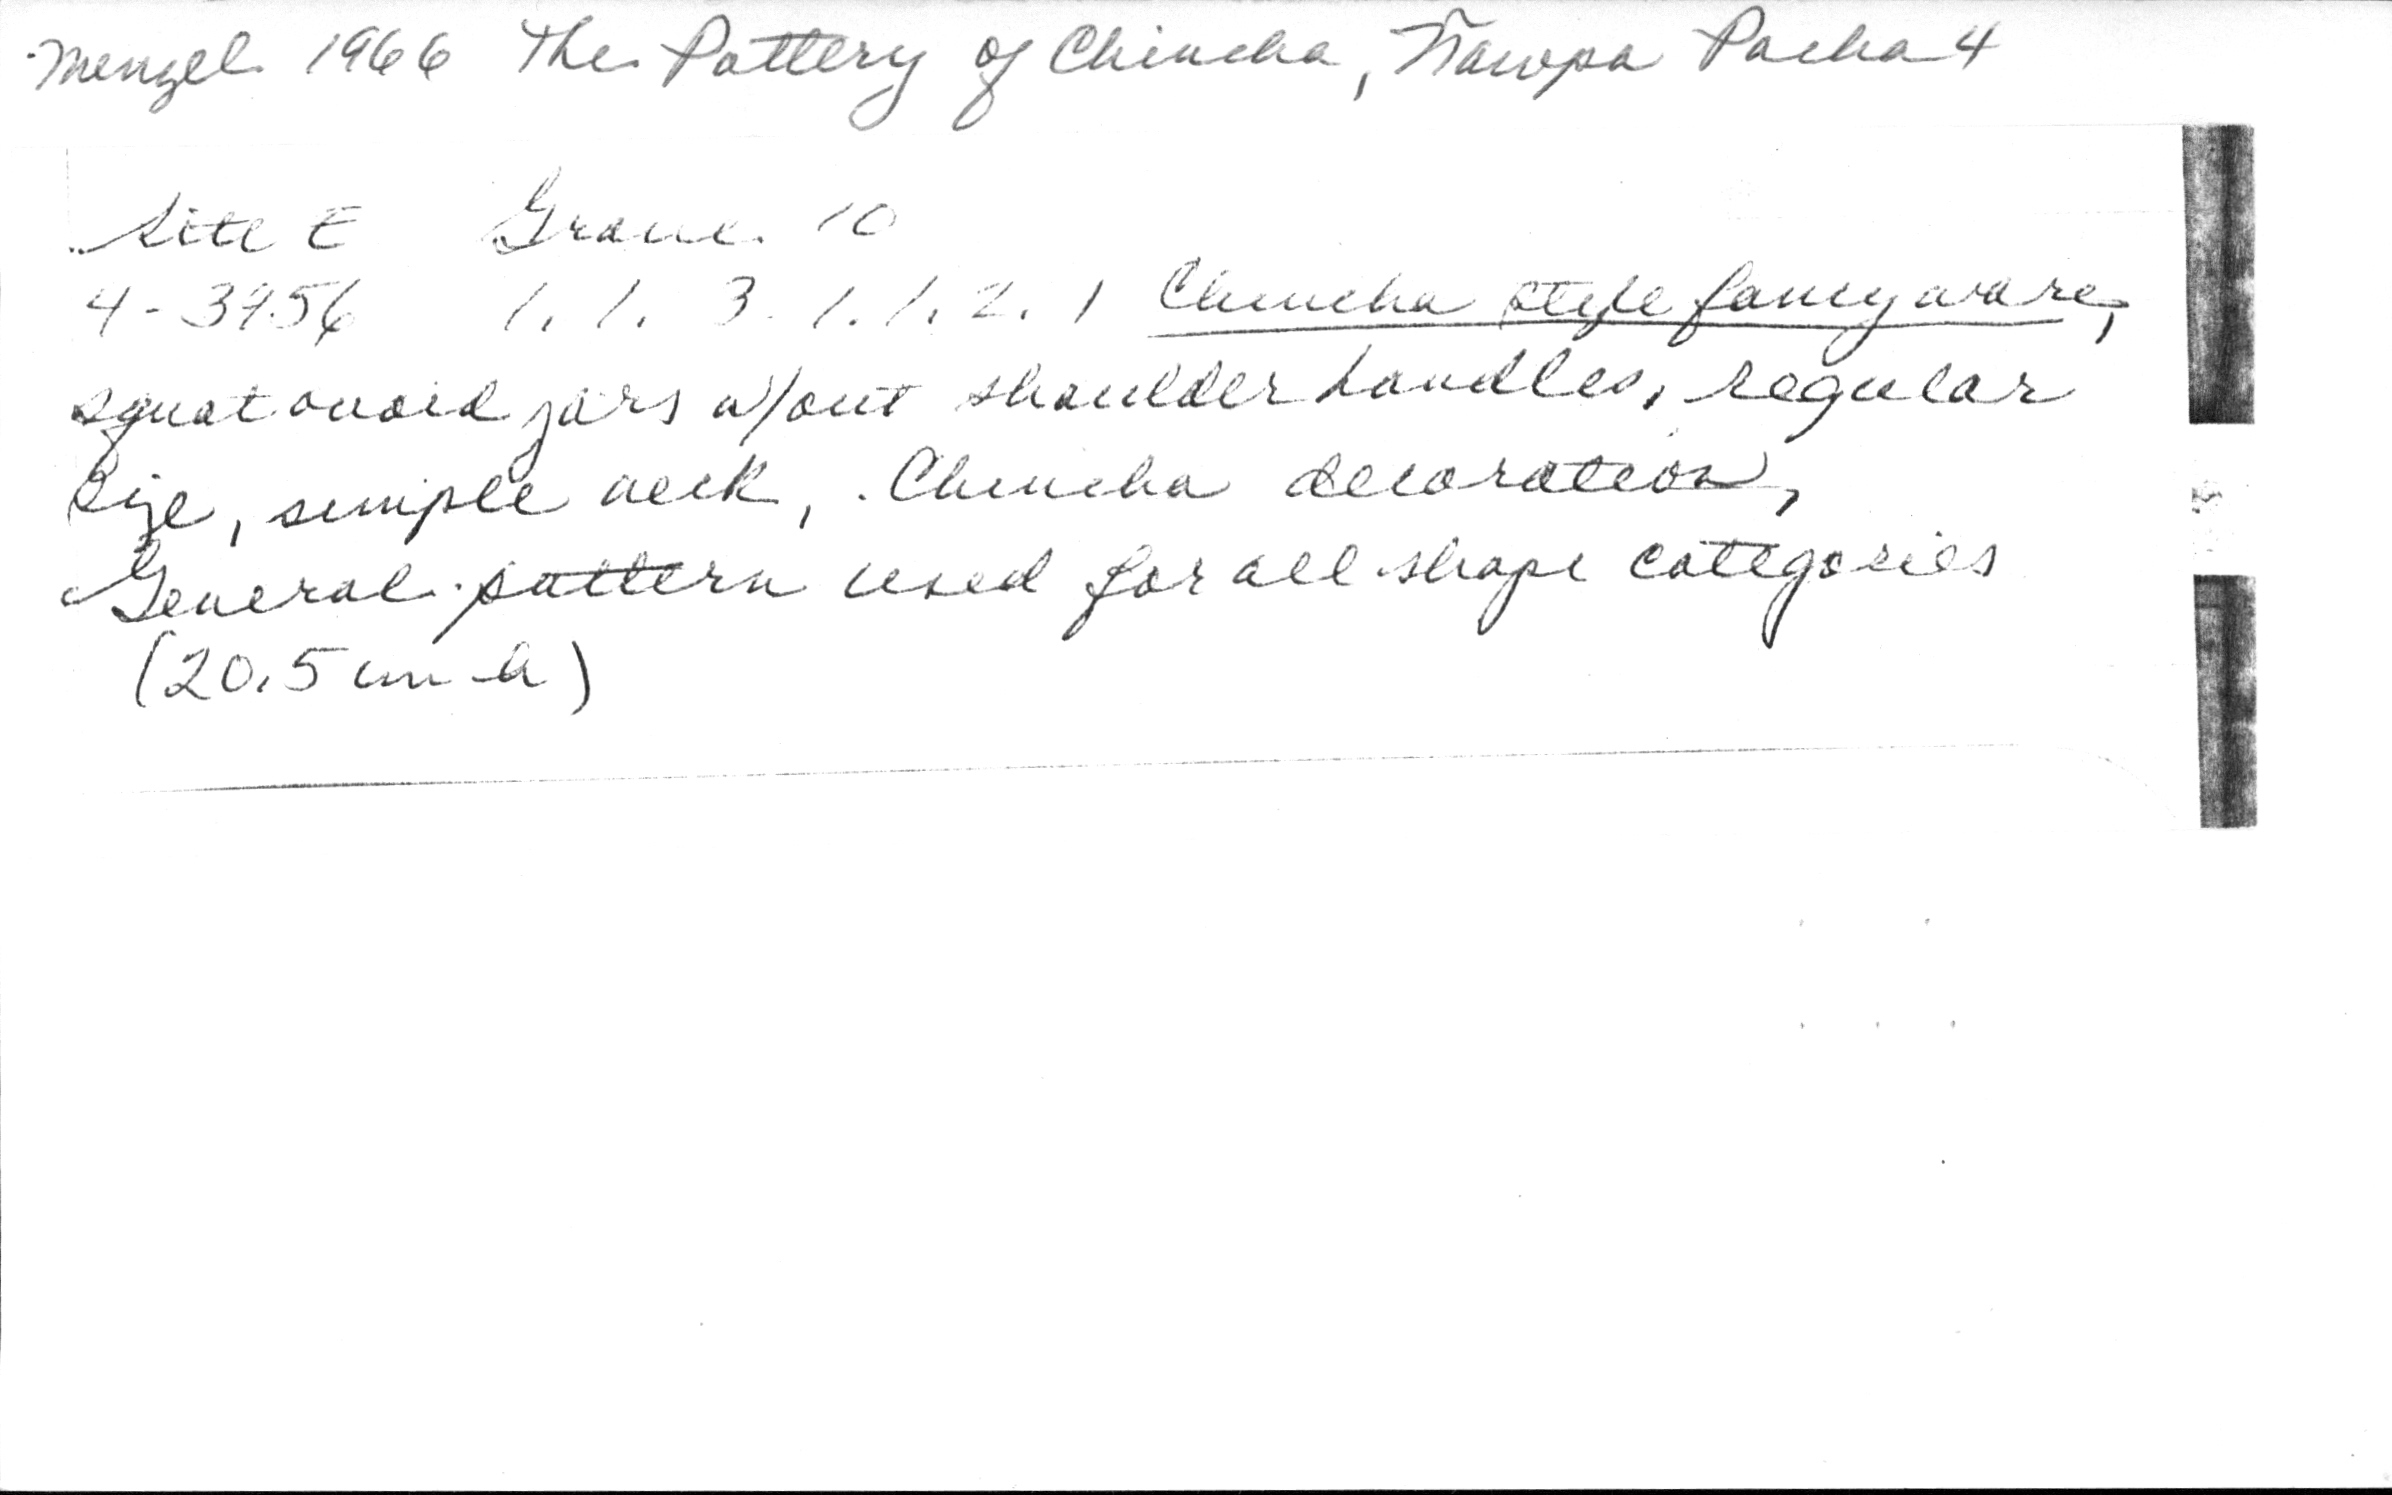 Menzel 1966 The Pottery of Chincha, Ñawpa Pacha 4
Site E Grave 10
4-3956 1. 1. 3. 1. 1. 2. 1 Chincha style fancy ware,
squat ovoid jars w/out shoulder handles, regular
size, simple neck, Chincha decoration,
General pattern used for all shape categories
(20.5 cm h)